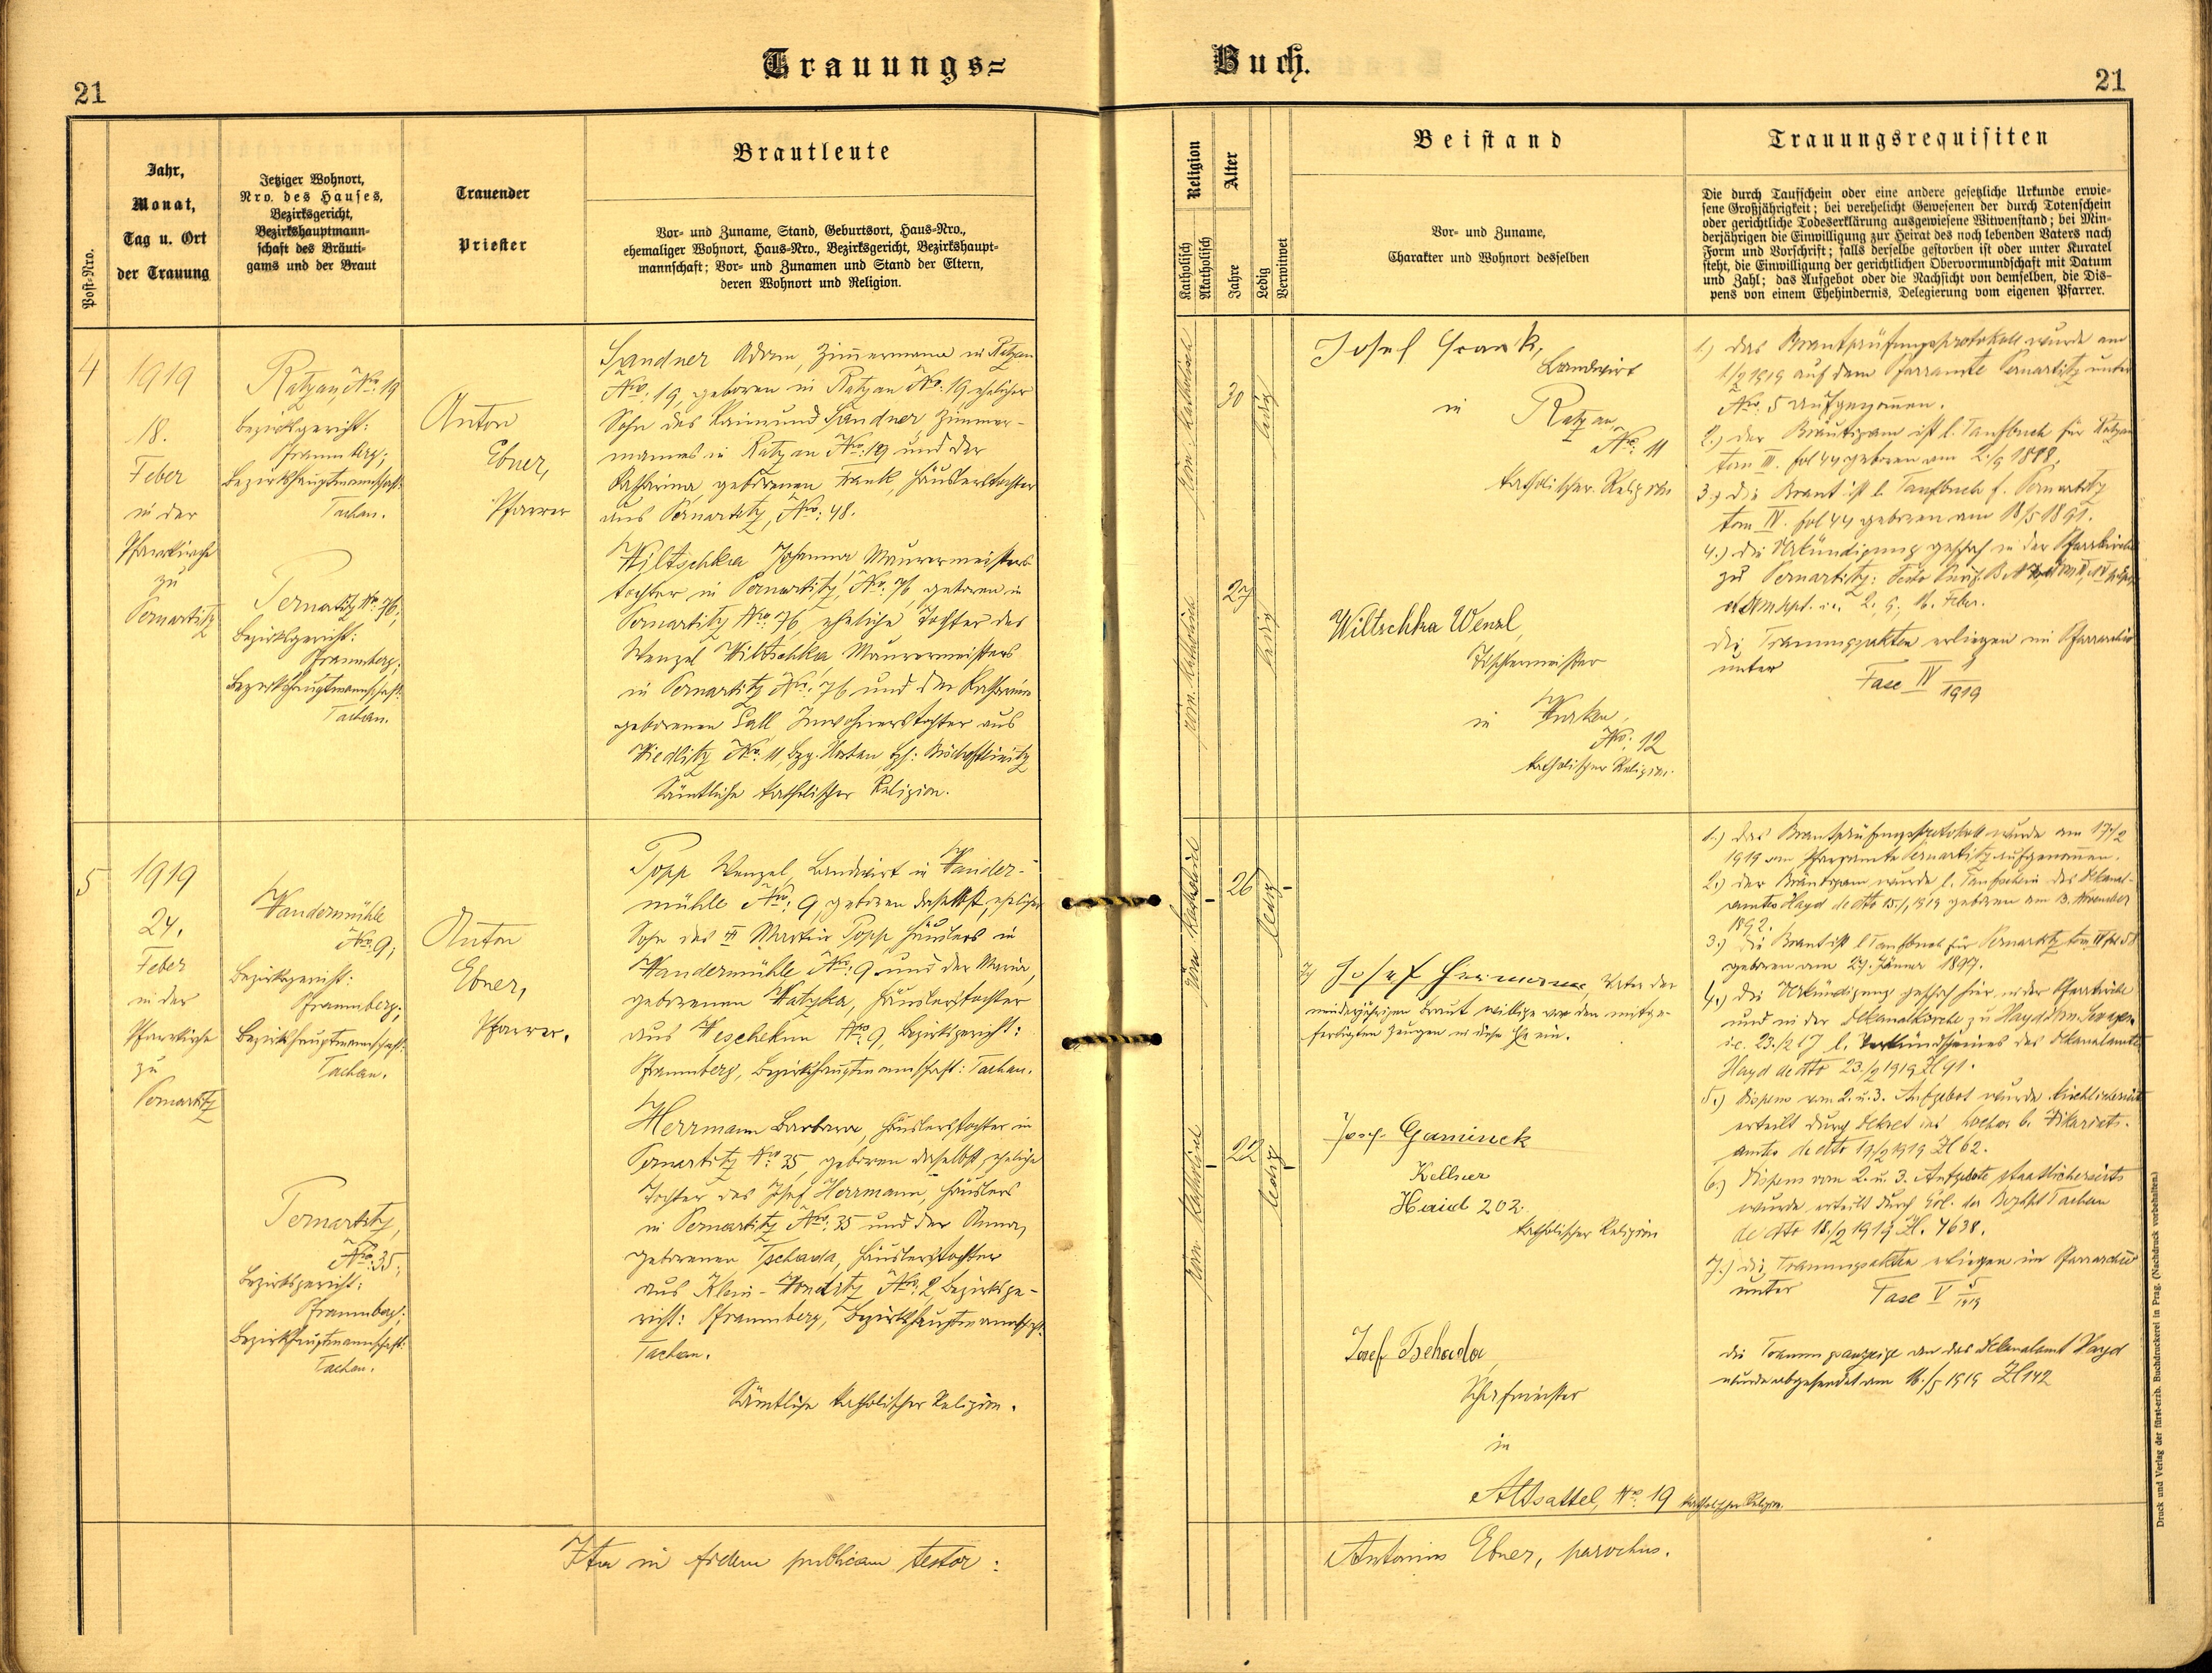 Trauungs=
Buch.
21
21
Post-Nro.
Jahr,
Monat,
Tag u. Ort
der Trauung
Jetziger Wohnort,
Nro. des Hauses,
Bezirksgericht,
Bezirkshauptmann-
schaft des Bräuti-
gams und der Braut
Trauender
Priester
Brautleute
Vor- und Zuname, Stand, Geburtsort, Haus-Nro.,
ehemaliger Wohnort, Haus-Nro., Bezirksgericht, Bezirkshaupt-
mannschaft; Vor- und Zunamen und Stand der Eltern,
deren Wohnort und Religion.
Religion
Katholisch
Akatholisch
Alter
Jahre
Ledig
Verwitwet
Beistand
Vor- und Zuname,
Charakter und Wohnort desselben
Trauungsrequisiten
Die durch Taufschein oder eine andere gesetzliche Urkunde erwie-
sene Großjährigkeit; bei verehelicht Gewesenen der durch Totenschein
oder gerichtliche Todeserklärung ausgewiesene Witwenstand; bei Min-
derjährigen die Einwilligung zur Heirat des noch lebenden Vaters nach
Form und Vorschrift; falls derselbe gestorben ist oder unter Kuratel
steht, die Einwilligung der gerichtlichen Obervormundschaft mit Datum
und Zahl; das Aufgebot oder die Nachsicht von demselben, die Dis-
pens von einem Ehehindernis, Delegierung vom eigenen Pfarrer.
4
1919
18.
Feber
in der
Pfarrkirche
zu
Pernartitz
Ratzau, Nro: 19
Bezirksgericht:
Pfraumberg;
Bezirkshauptmannschaft:
Tachau.
Pernartitz No: 76;
Bezirksgericht:
Pfraumberg;
Bezirkshauptmannschaft:
Tachau.
Anton
Ebner,
Pfarrer
Sandner Adam, Zimmermann in Ratzau
Nro: 19, geboren in Ratzau Nro: 19, ehelicher
Sohn des Raimund Sandner Zimmer-
mannes in Ratzau Nro: 19 und der
Katharina gebornen Frank, Häuslerstochter
aus Pernartitz, Nro: 48.
Wiltschka Johanna, Maurermeisters
tochter in Pernartitz, Nro. 76, geboren in
Pernartitz Nro: 76, eheliche Tochter des
Wenzel Wiltschka, Maurermeisters
in Pernartitz Nro: 76 und der Katharina
geborenen Lall Inwohnerstochter aus
Wiedlitz Nro: 11,
Sämtliche katholischer Religion.
röm. katholisch
30
ledig
röm. katholisch
27
ledig
Josef Frank,
Landwirt
in Ratzau,
No: 11
katholischer Religion
Wiltschka Wenzl,
Tischlermeister
in
Nro: 12
katholischer Religion.
1.) Das Brautprüfungsprotokoll wurde am
1/2 1919 auf dem Pfarramte Pernartitz unter
Nro. 5 aufgenommen.
2.) Der Bräutigam ist l. Taufbuch für Ratzau
tom III. fol 44 geboren am 2./9 1888.
3.) Die Braut ist l. Taufbuch f. Pernartitz
tom IV. fol 44 geboren am 18/5 1891.
4.) Die Verkündigung geschah in der Pfarrkirche
zu Pernartitz:
i.e. 2. 9. 16. Feber.
Die Trauungsakten erliegen im Pfarrarchiv
unter
Fasc IV 4/1919
5
1919
24.
Feber
in der
Pfarrkirche
zu
Pernartitz
Wandermühle
Nro. 9;
Bezirksgericht:
Pfraumberg;
Bezirkshauptmannschaft:
Tachau.
Pernartitz,
Nro: 35;
Bezirksgericht:
Pfraumberg;
Bezirkshauptmannschaft:
Tachau.
Anton
Ebner,
Pfarrer.
Popp Wenzel, Landwirt in Wander-
mühle Nro: 9, geboren daselbst, ehelicher
Sohn des Martin Popp Häuslers in
Wandermühle Nro: 9 und der Maria,
gebornen Watzka, Häuslerstochter
aus Weschekun Nro 9, Bezirksgericht:
Pfraumberg, Bezirkshauptmannschaft: Tachau.
Herrmann Barbara, Häuslerstochter in
Pernartitz Nro: 35, geboren daselbst, eheliche
Tochter des Josef Herrmann, Häuslers
in Pernartitz Nro. 35 und der Anna,
gebornen Tschada, Häuslerstochter
aus Klein-Wonetitz Nro. 2, Bezirksge-
richt: Pfraumberg, Bezirkshauptmannschaft:
Tachau.
Sämtliche katholischer Religion.
röm katholisch
26
ledig
röm katholisch
22
ledig
Josef Hermann, Vater der
minderjährigen Braut willige vor den mitge-
fertigten Zeugen in diese Ehe ein.
Josef Gaminek
Kellner
Haid 202.
katholischer Religion
Josef Tschada,
Schafmeister
in
Altsattel, No 19 katholischer Religion.
1.) Das Brautprüfungsprotokoll wurde am 17/2
1919 am Pfarramte Pernartitz aufgenommen.
2.) Der Bräutigam wurde l. Taufschein des Dekanal-
amtes Hayd de dto 15./1 1919 geboren am 3. November
1892.
3.) Die Braut ist l Taufbuch für Pernartitz tom IV fol 58
geboren am 27. Jänner 1897.
4.) Die Verkündigung geschah hier in der Pfarrkirche
und in der Dekanalkirche zu Hayd
i.e. 23./2 19 l. Verkündscheines des Dekanalamtes
Hayd de dto 23./2 1919 Zl 91.
5.) Dispens vom 2. u. 3. Aufgebot wurde kirchlicherseits
erteilt durch Dekret des b. Vikariats-
amtes de dto 19/2 1919 Zl 62.
6.) Dispens vom 2. u. 3. Aufgebote staatlicherseits
wurde erteilt durch Erl. der Bezhpt Tachau
de dto 18./2 1919 Zl. 7638.
7.) Die Trauungsakten erliegen im Pfarrarchiv
unter
Fasc V 5/1919
Die Trauungsanzeige an das Dekanalamt Hayd
wurde abgesendet am 16./5 1919 Zl 142
Ita in fidem publicam testor:
Antonius Ebner, parochus.
Druck und Verlag der fürst-erzb. Buchdruckerei in Prag. (Nachdruck vorbehalten.)